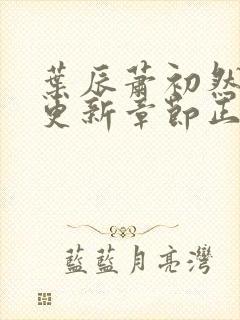 葉辰蕭初然
更新章節正
藍藍月亮灣